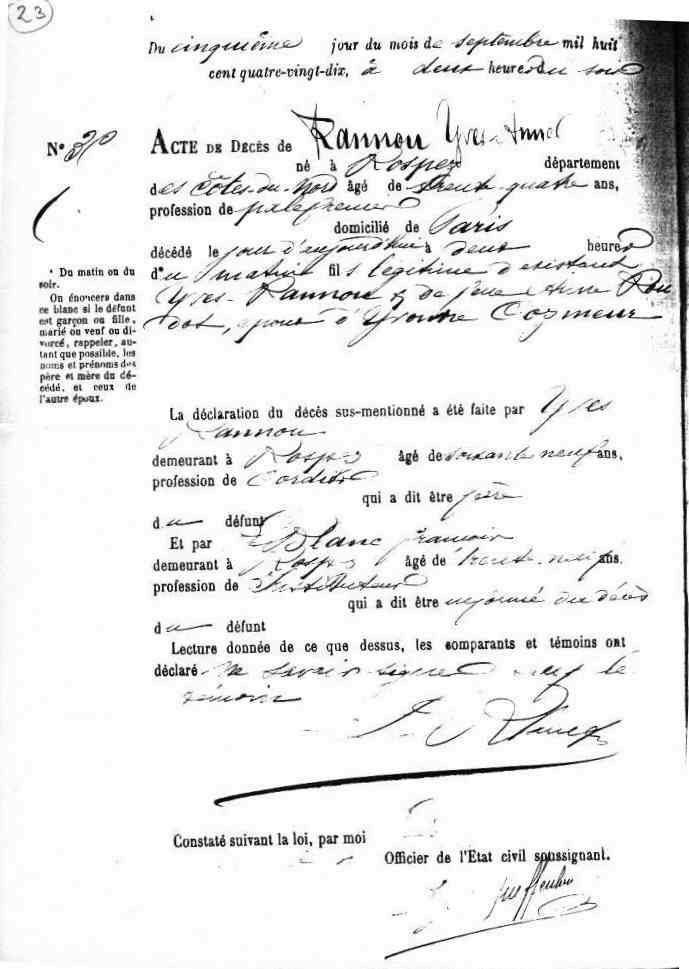 23
Du cinquième jour du mois de septembre mil huit
cent quatre-vingt-dix, à deux heures du soir
N° 30
ACTE DE DÉCÈS de Rannou Yves
né à Rospez département
des Côtes-du-Nord âgé de trente-quatre ans,
profession de palefrenier
domicilié de Paris
décédé le jour d'aujourd'hui à deux heures
du matin fils légitime d'existant
Yves Rannou & de feue Anne Rou
dot, époux d'Yvonne Cozmeur
¹ Du matin ou du
soir.
On énoncera dans
ce blanc si le défunt
est garçon ou fille,
marié ou veuf ou di-
vorcé, rappeler, au-
tant que possible, les
noms et prénoms des
père et mère du dé-
cédé, et ceux de
l'autre époux.
La déclaration du décès sus-mentionné a été faite par Yves
Rannou
demeurant à Rospez âgé de soixante neuf ans,
profession de Cordier
qui a dit être père
du défunt
Et par Le Blanc François
demeurant à Rospez âgé de trente-neuf ans.
profession de Instituteur
qui a dit être informé du décès
du défunt
Lecture donnée de ce que dessus, les comparants et témoins ont
déclaré ne savoir signer le
témoin
Constaté suivant la loi, par moi
Officier de l'Etat civil soussignant.